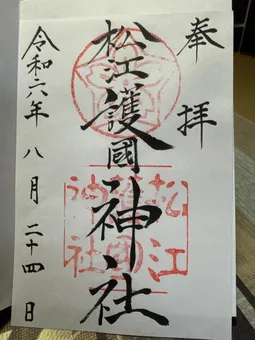 奉拝
松江護國神社
松江護國神社
令和六年八月二十四日